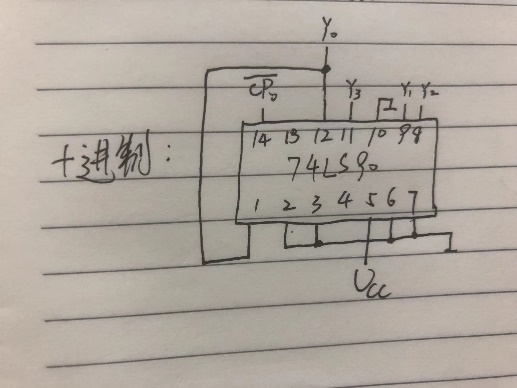 Y₀
C̅P̅₀ Y₃ Y₁ Y₂
14 13 12 11 10 9 8
十进制: 74LS90
1 2 3 4 5 6 7
Ucc